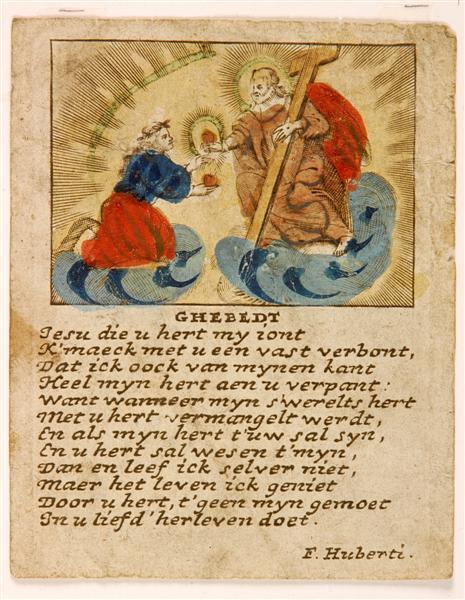 GHEBEDT
Iesu die u hert my iont
K'maeck met u een vast verbont,
Dat ick oock van mynen kant
Heel myn hert aen u verpant:
Want wanneer myn s'werelts hert
Met u hert vermangelt werdt,
En als myn hert t'uw sal syn,
En u hert sal wesen t'myn,
Dan en leef ick selver niet,
Maer het leven ick geniet
Door u hert, t'geen myn gemoet
In u liefd' herleven doet.
F. Huberti.